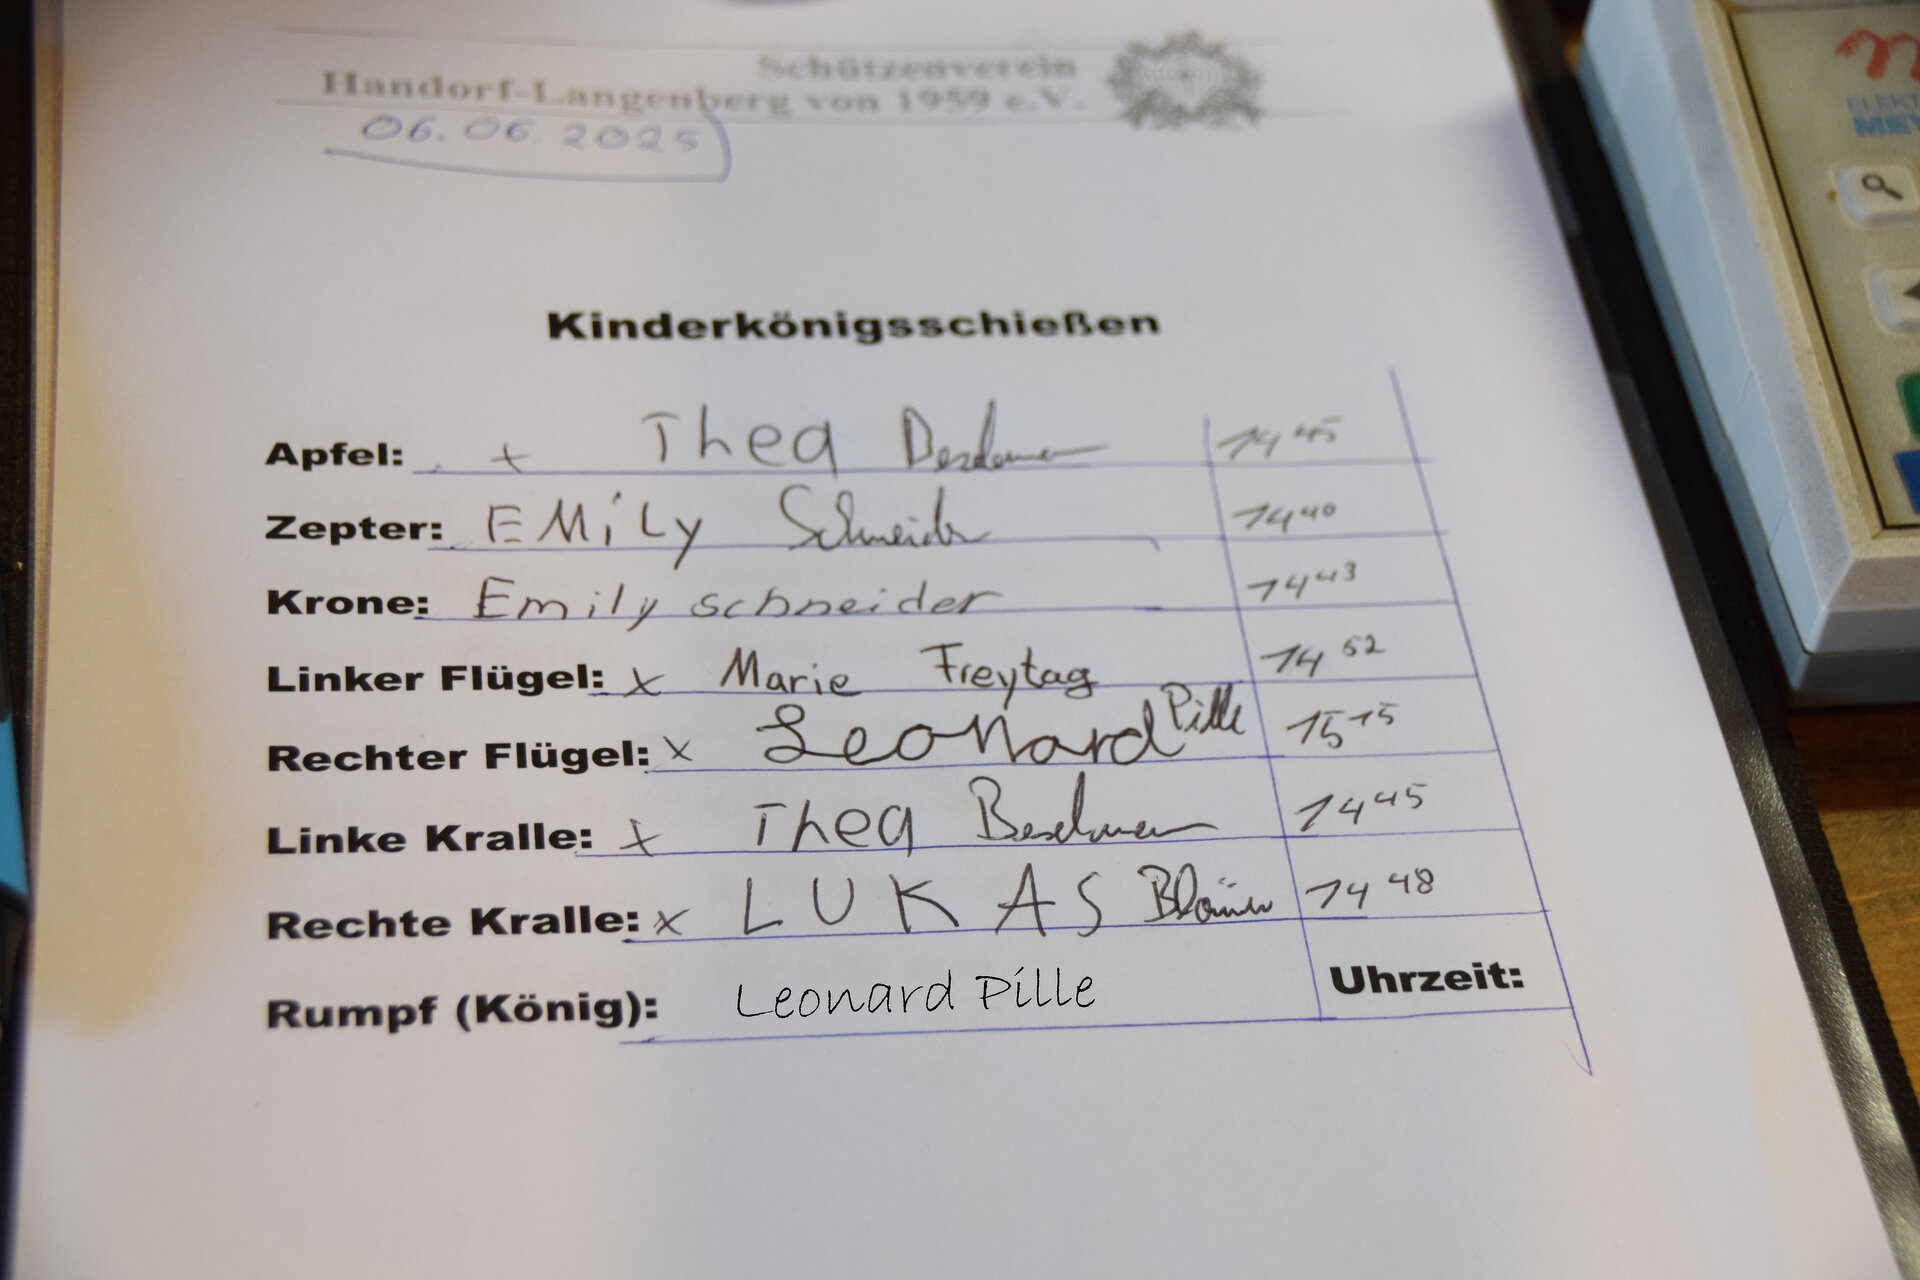 Schützenverein
Handorf-Langenberg von 1959 e.V.
06.06.2025
Kinderkönigsschießen
Apfel: x Thea 14 45
Zepter: EMiLy Schneider 14 40
Krone: Emily schneider 14 43
Linker Flügel: x Marie Freytag 14 52
Rechter Flügel: x Leonard Pille 15 15
Linke Kralle: x Thea 14 45
Rechte Kralle: x LUKAS 14 48
Rumpf (König): Leonard Pille Uhrzeit: